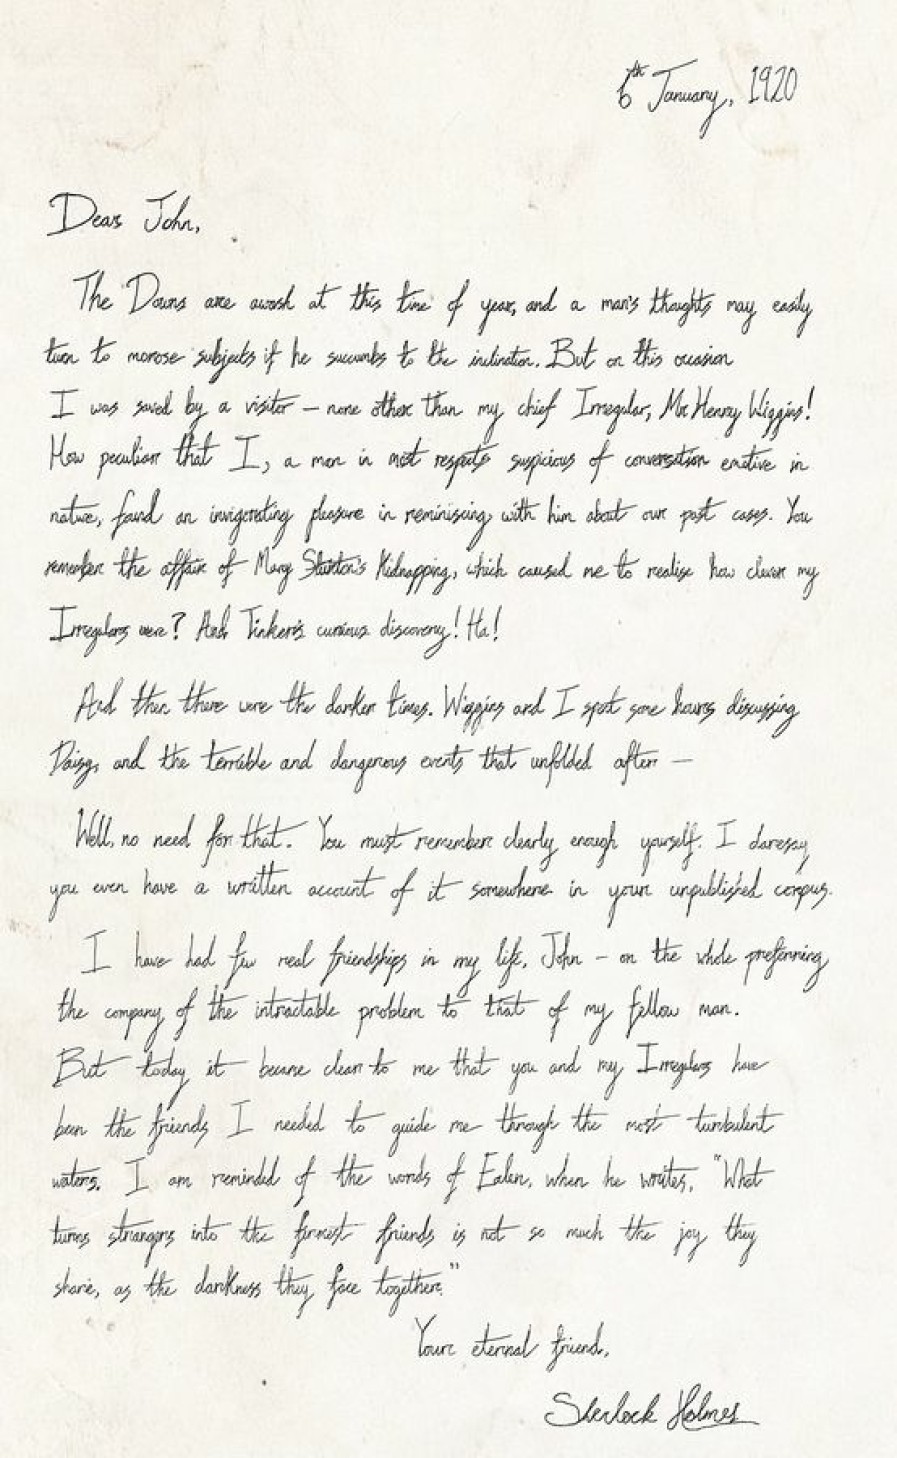 6th January, 1920
Dear John,
The Downs are awash at this time of year, and a man's thoughts may easily
turn to morose subjects if he succumbs to the inclination. But on this occasion
I was saved by a visitor – none other than my chief Irregular, Mr Henry Wiggins!
How peculiar that I, a man in most respects suspicious of conversation emotive in
nature, found an invigorating pleasure in reminiscing with him about our past cases. You
remember the affair of Mary Stanton's Kidnapping, which caused me to realise how clever my
Irregulars were? And Tinker's curious discovery! Ha!
And then there were the darker times. Wiggins and I spent some hours discussing
Daisy, and the terrible and dangerous events that unfolded after –
Well, no need for that. You must remember clearly enough yourself. I daresay
you even have a written account of it somewhere in your unpublished corpus.
I have had few real friendships in my life, John – on the whole preferring
the company of the intractable problem to that of my fellow man.
But today it became clear to me that you and my Irregulars have
been the friends I needed to guide me through the most turbulent
waters. I am reminded of the words of Ealen, when he writes, "What
turns strangers into the firmest friends is not so much the joy they
share, as the darkness they face together."
Your eternal friend,
Sherlock Holmes